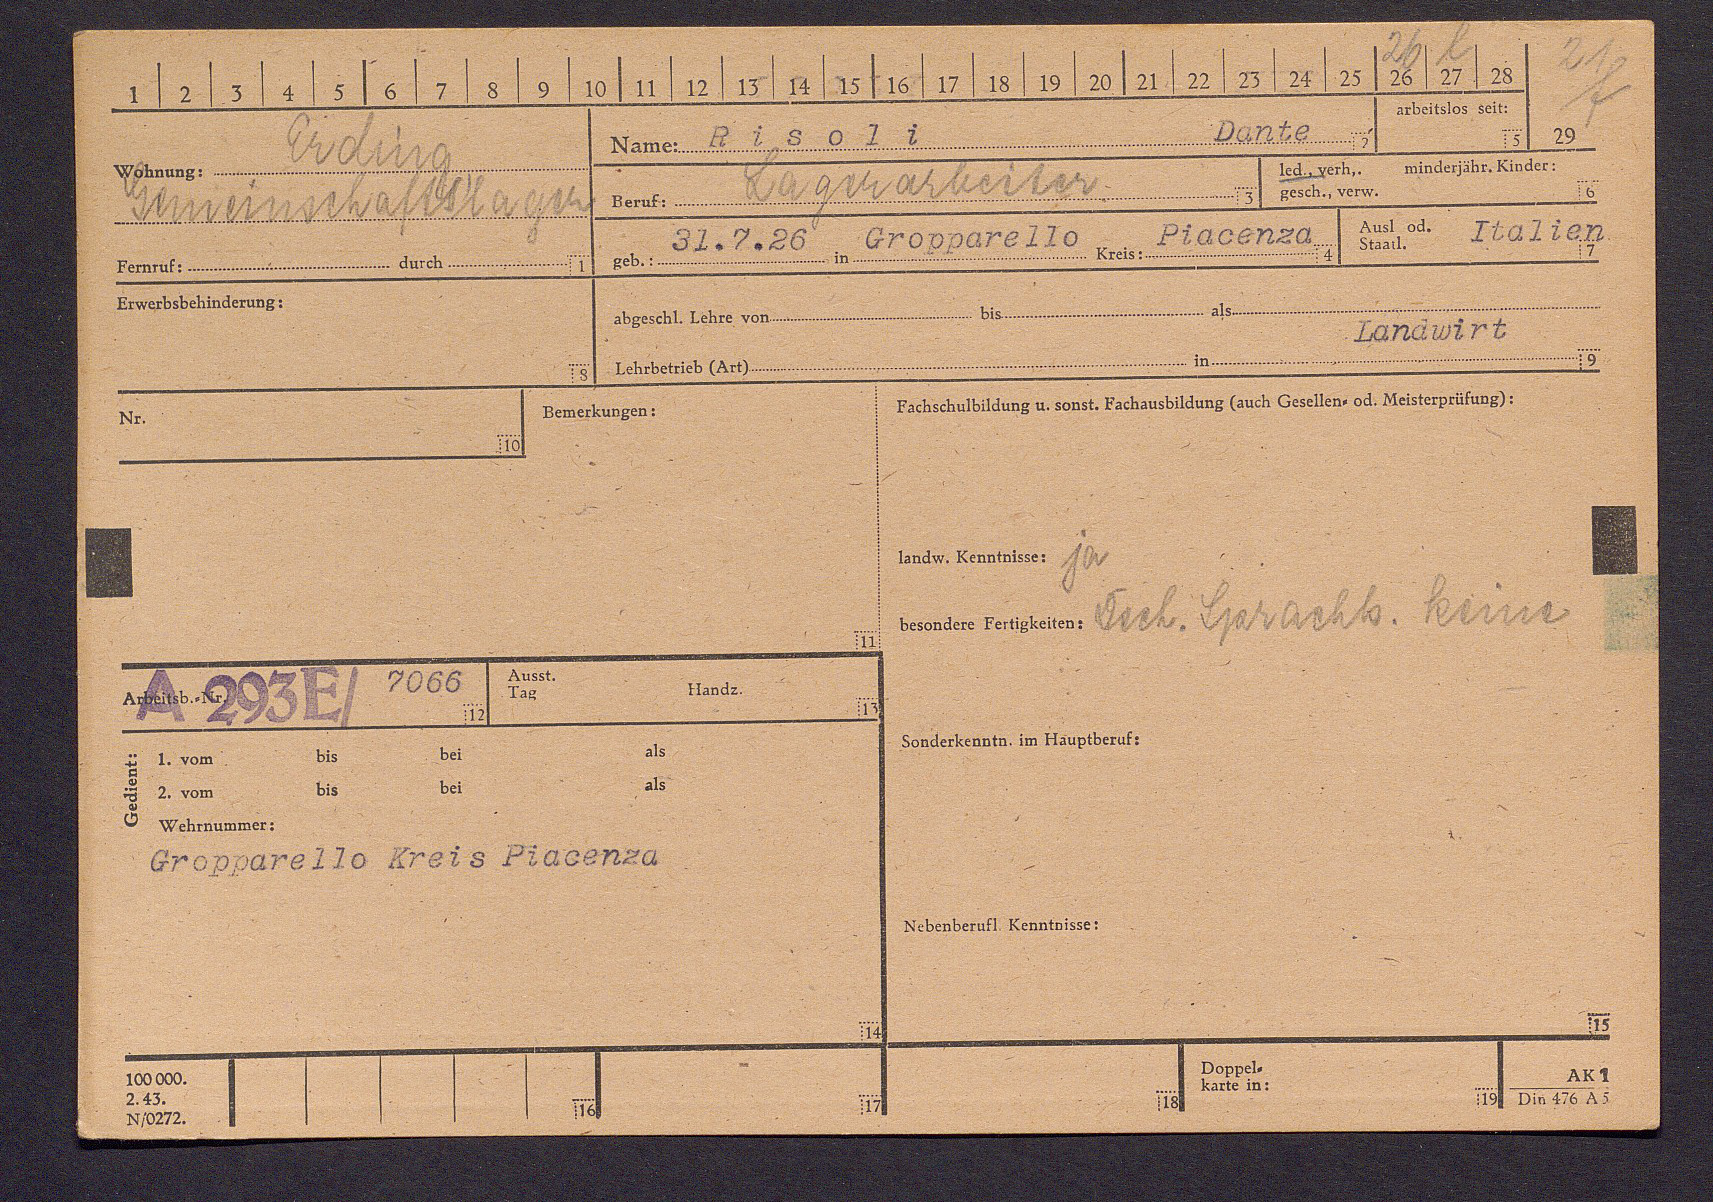 26 l
1 2 3 4 5 6 7 8 9 10 11 12 13 14 15 16 17 18 19 20 21 22 23 24 25 26 27 28
arbeitslos seit:
5
29
Erding
Name: Risoli Dante 2
Wohnung:
Gemeinschaftslager
Lagerarbeiter
Beruf: 3
led., verh,. minderjähr. Kinder:
gesch., verw. 6
31.7.26 Gropparello Piacenza
geb.: in Kreis: 4
Ausl od. Italien
Staatl. 7
Fernruf: durch 1
Erwerbsbehinderung:
8
abgeschl. Lehre von bis als
Landwirt
Lehrbetrieb (Art) in 9
Nr.
10
Bemerkungen:
11
Fachschulbildung u. sonst. Fachausbildung (auch Gesellen- od. Meisterprüfung):
landw. Kenntnisse: ja
besondere Fertigkeiten: Dtsch. Sprachk. keine
Arbeitsb.-Nr. A 293E/ 7066 12
Ausst.
Tag Handz. 13
Gedient:
1. vom bis bei als
2. vom bis bei als
Wehrnummer:
Gropparello Kreis Piacenza
14
Sonderkenntn. im Hauptberuf:
Nebenberufl. Kenntnisse:
15
100 000.
2. 43.
N/0272.
16
17
18
Doppel-
karte in: 19
AK 1
Din 476 A 5